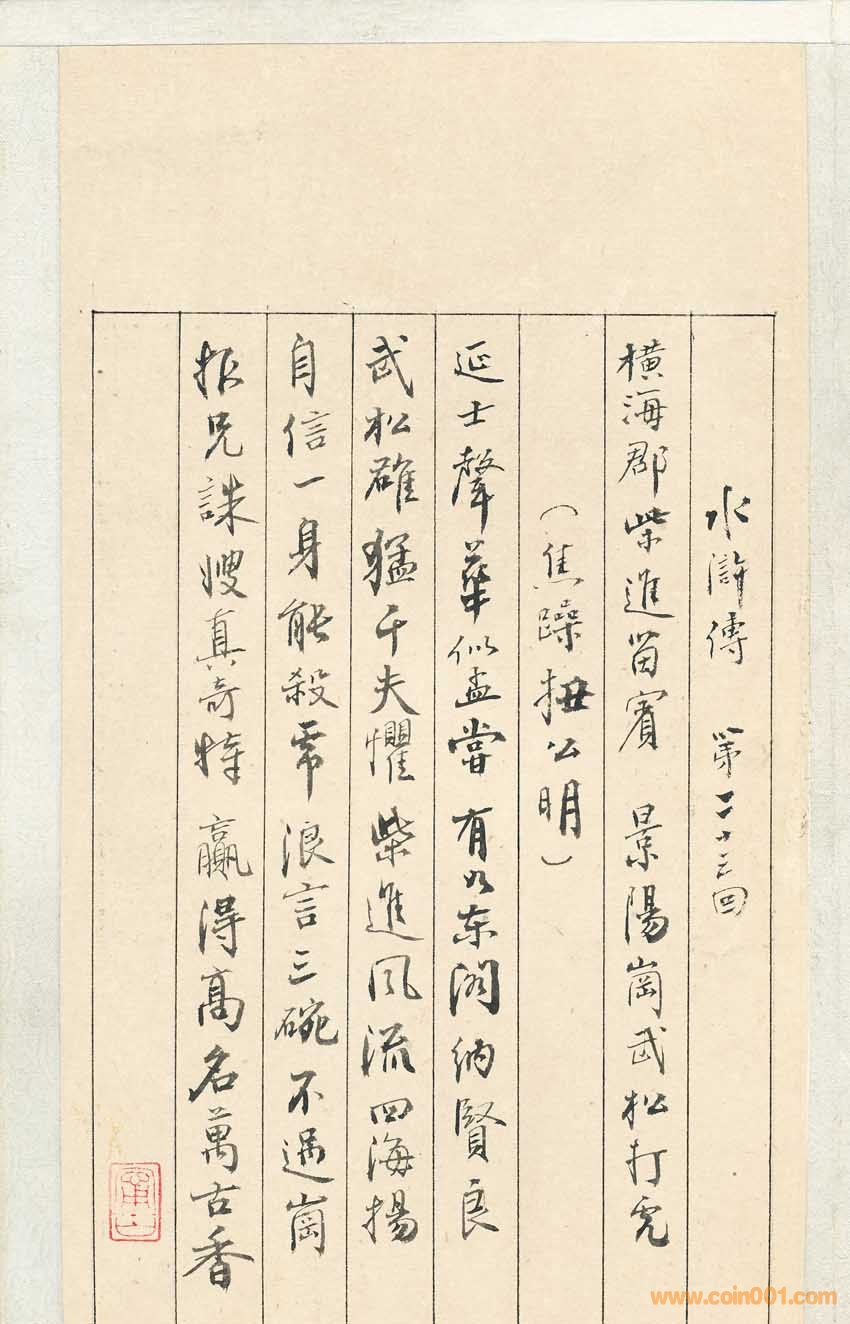 水滸傳 第二十三回
橫海郡柴進留賓 景陽崗武松打虎
(焦躁扭公明)
延士聲華似孟嘗 有如東閣納賢良
武松雄猛千夫懼 柴進風流四海揚
自信一身能殺虎 浪言三碗不過崗
报兄誅嫂真奇特 贏得高名萬古香
www.coin001.com